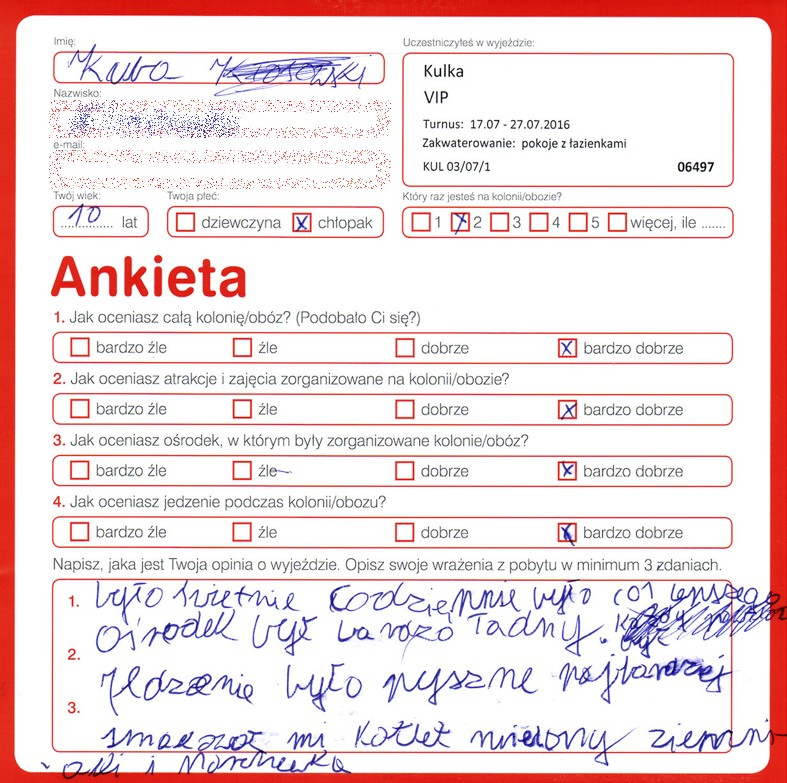 Imię: Uczestniczyłeś w wyjeździe:
Kuba
Kulka
VIP
Nazwisko:
Turnus: 17.07 - 27.07.2016
e-mail:
Zakwaterowanie: pokoje z łazienkami
KUL 03/07/1 06497
Twój wiek: Twoja płeć: Który raz jesteś na kolonii/obozie?
10 lat dziewczyna x chłopak 1 x 2 3 4 5 więcej, ile .......
Ankieta
1. Jak oceniasz całą kolonię/obóz? (Podobało Ci się?)
bardzo źle źle dobrze x bardzo dobrze
2. Jak oceniasz atrakcje i zajęcia zorganizowane na kolonii/obozie?
bardzo źle źle dobrze x bardzo dobrze
3. Jak oceniasz ośrodek, w którym były zorganizowane kolonie/obóz?
bardzo źle źle dobrze x bardzo dobrze
4. Jak oceniasz jedzenie podczas kolonii/obozu?
bardzo źle źle dobrze x bardzo dobrze
Napisz, jaka jest Twoja opinia o wyjeździe. Opisz swoje wrażenia z pobytu w minimum 3 zdaniach.
1. było świetnie Codziennie było coś lepszego
Ośrodek był bardzo ładny.
2.
Jedzenie było pyszne najbardziej
3.
smakował mi kotlet mielony ziemni-
- aki i Marchewka